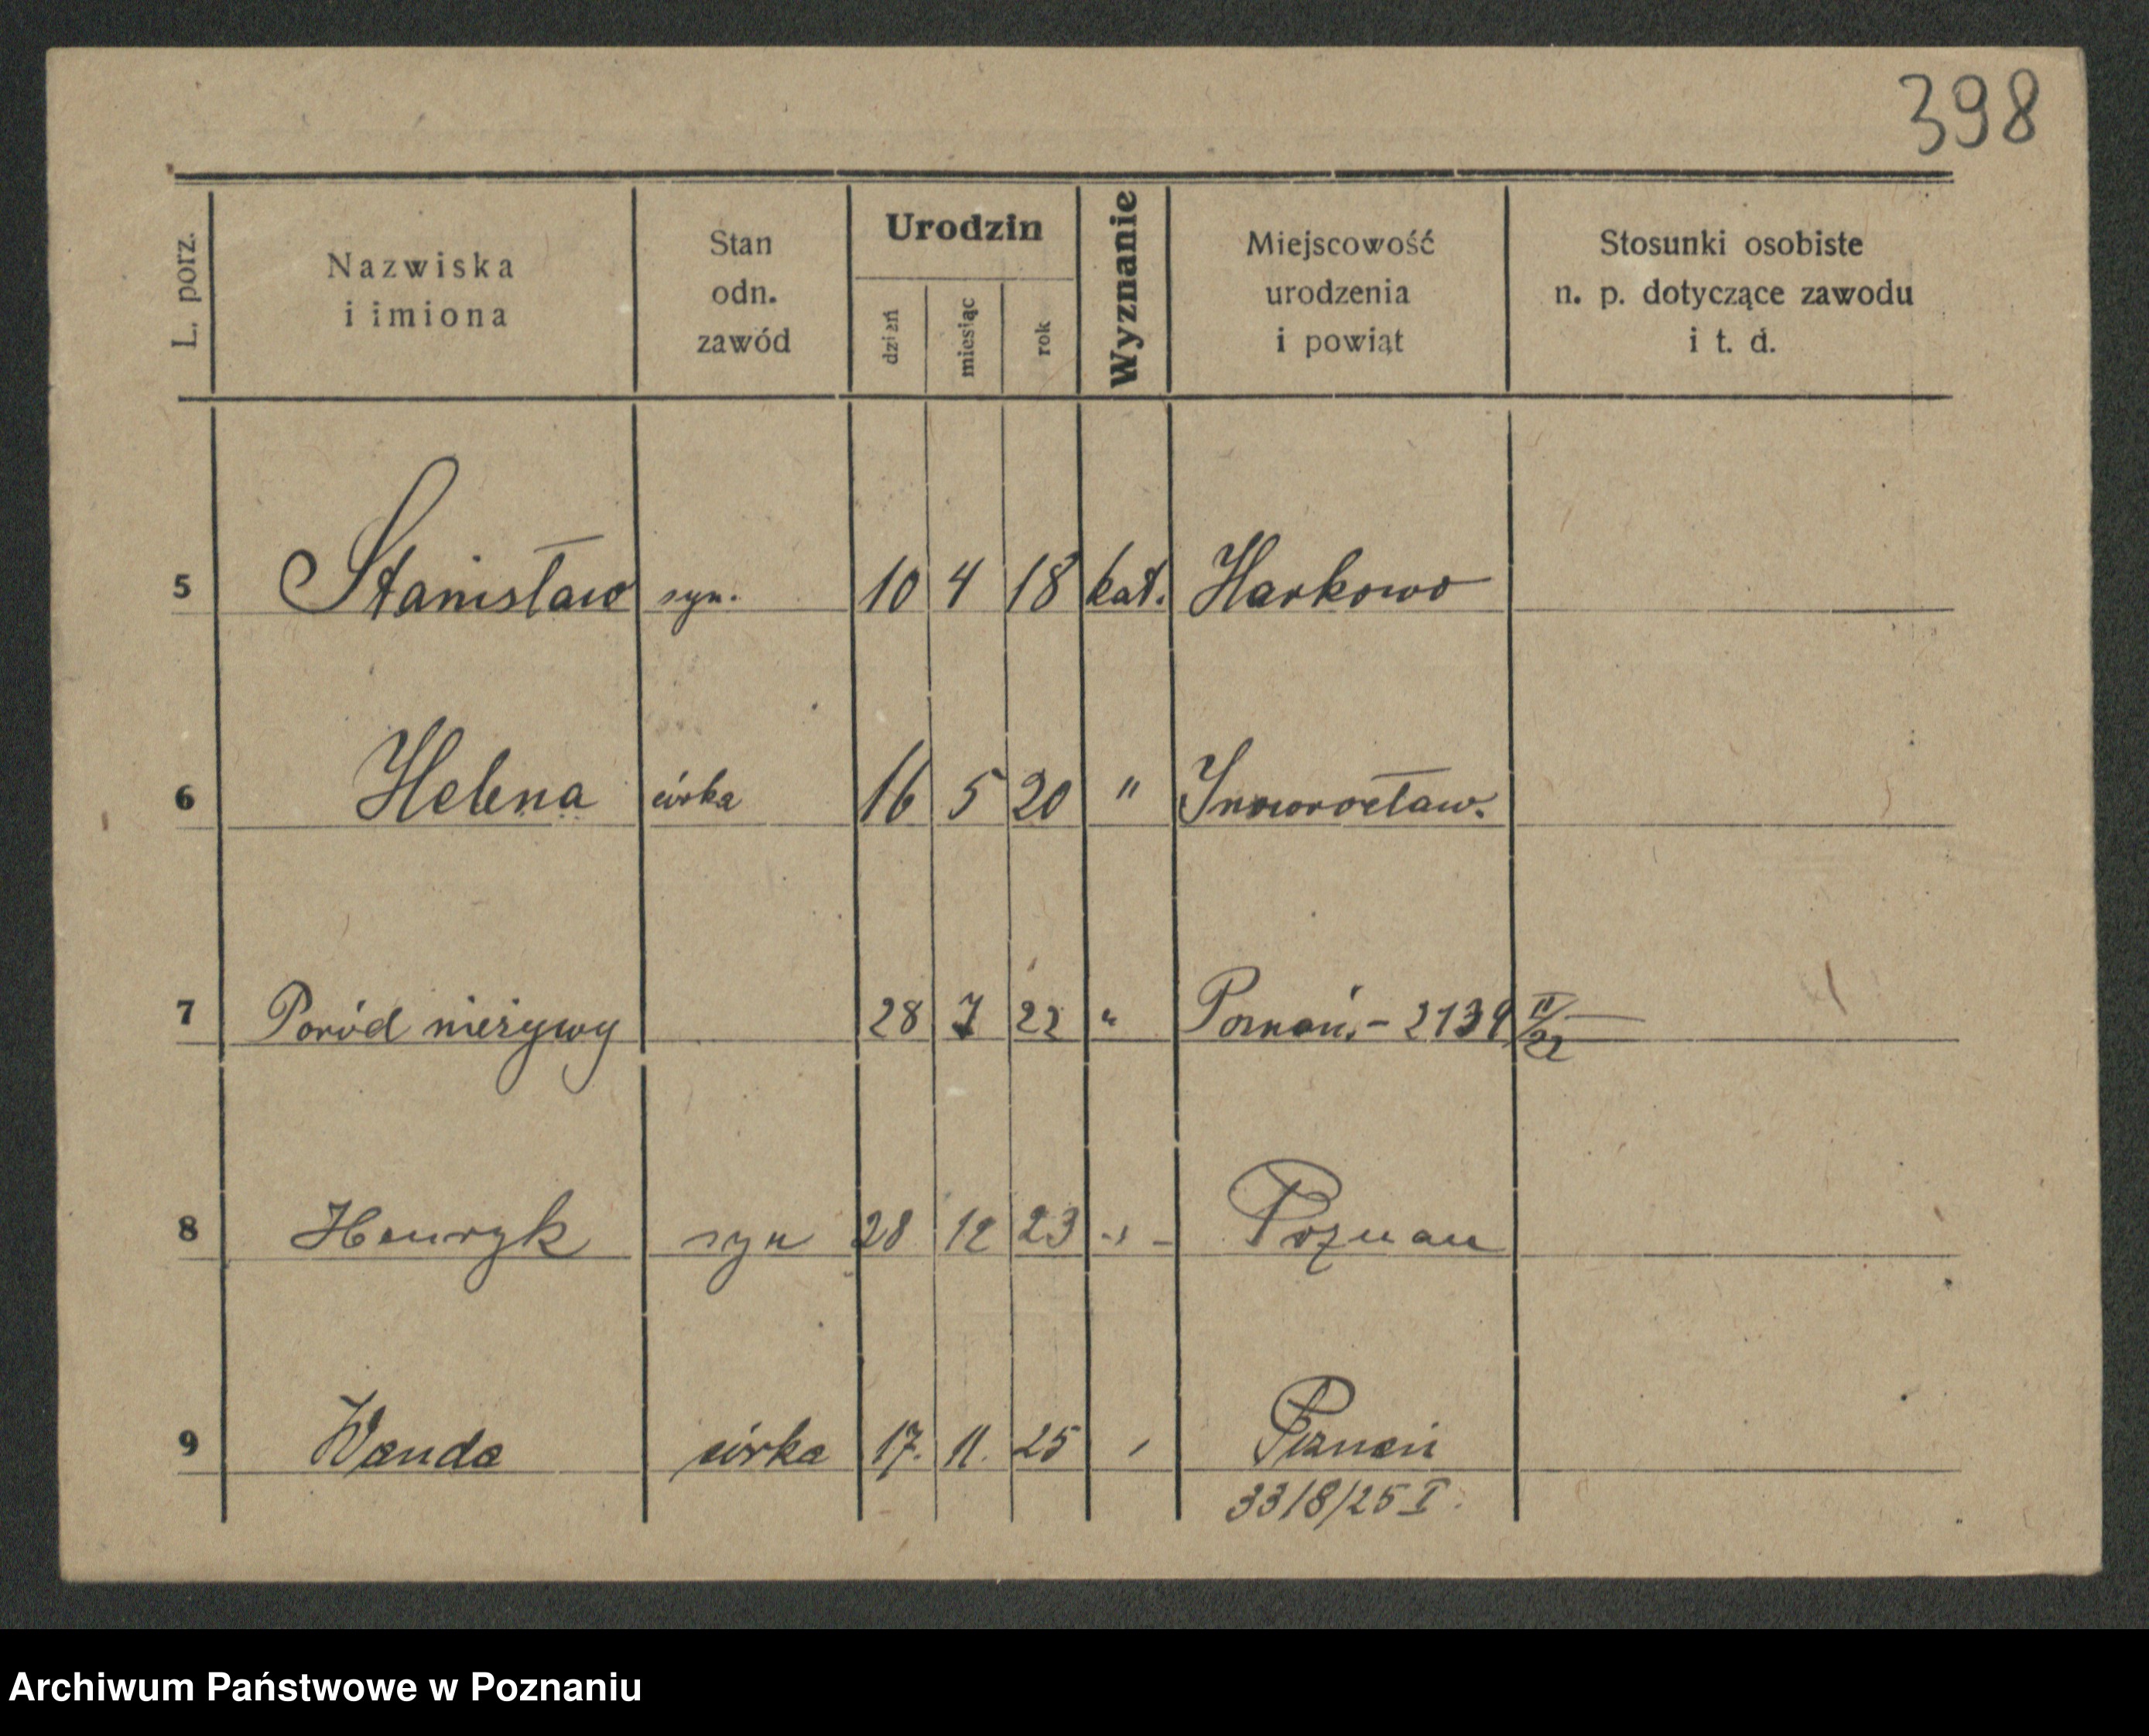 398
L. porz. Nazwiska i imiona Stan odn. zawód Urodzin dzień miesiąc rok Wyznanie Miejscowość urodzenia i powiąt Stosunki osobiste n. p. dotyczące zawodu i t. d.
5 Stanisław syn. 10 4 18 kat. Harkowo
6 Helena córka 16 5 20 " Inowrocław.
7 Poród nieżywy 28 7 22 " Poznań. - 2139 II/22
8 Henryk syn 28 12 23 -"- Poznan
9 Wanda córka 17. 11. 25 " Poznań
3318/25 I.
Archiwum Państwowe w Poznaniu